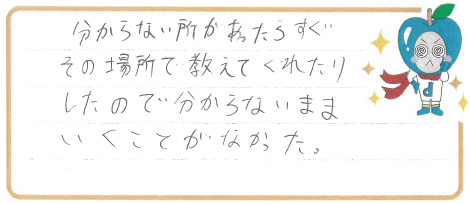 分からない所があったらすぐ
その場所で教えてくれたり
したので分からないまま
いくことがなかった。
d